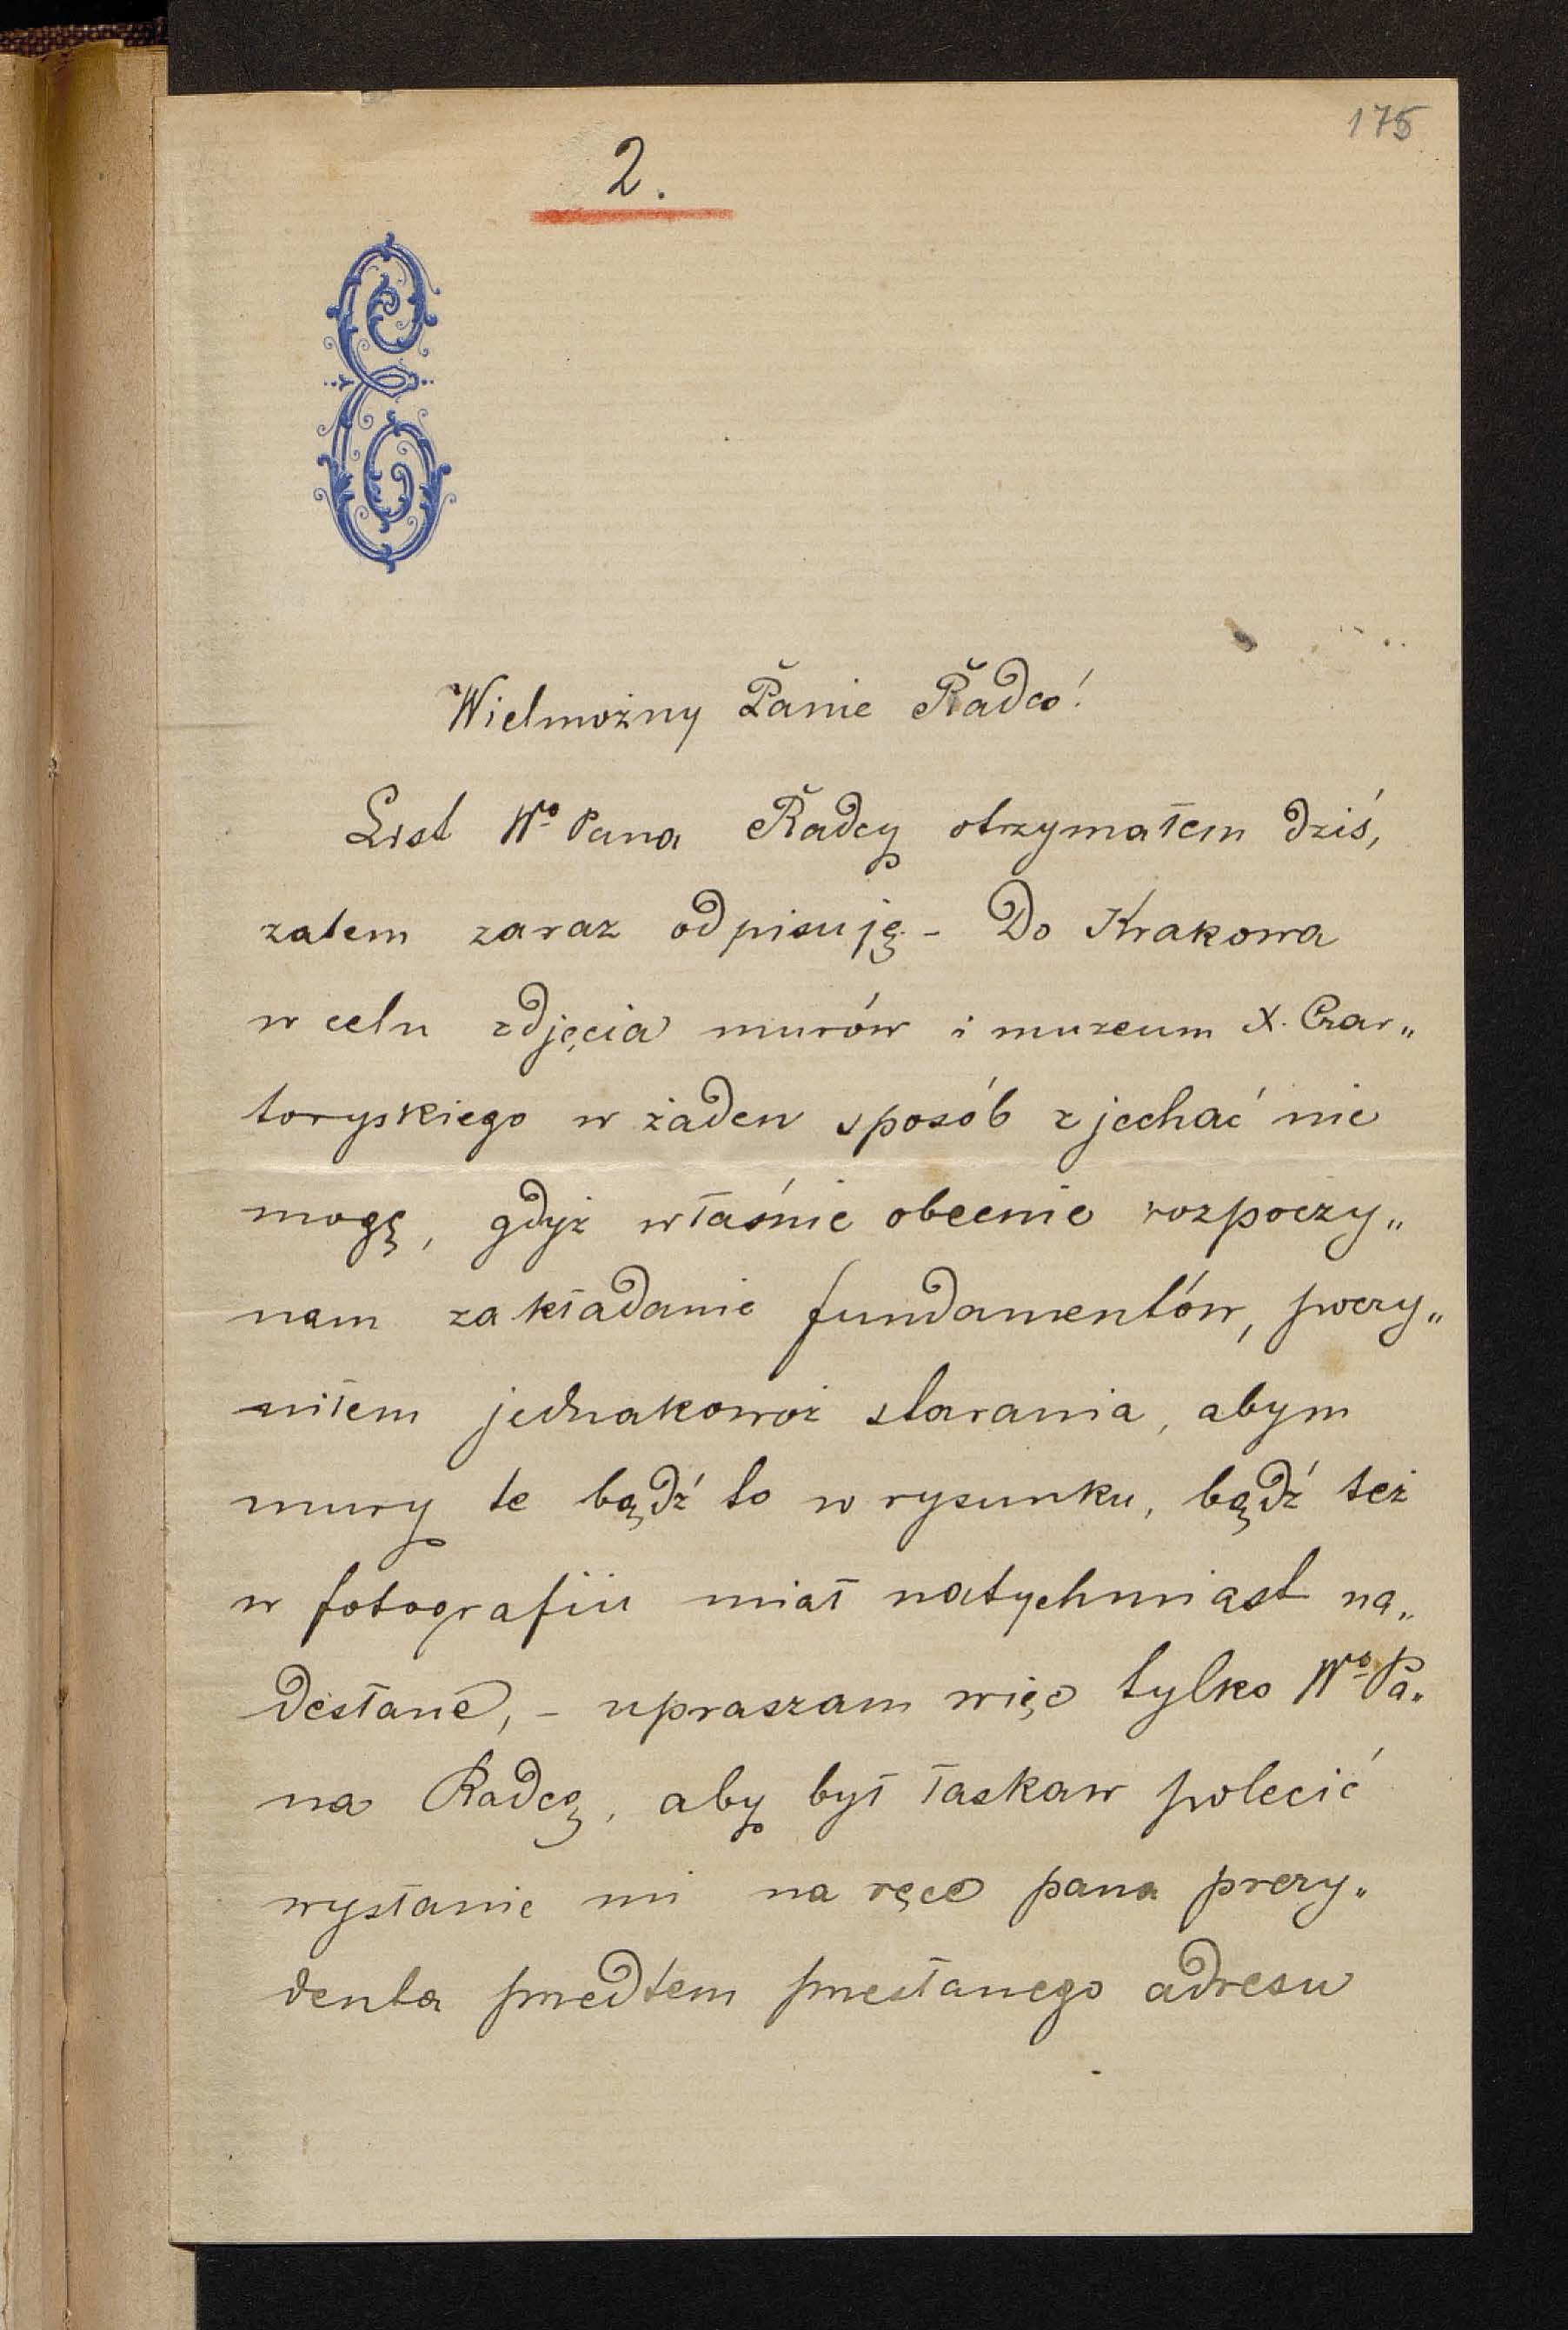 175
2.
Wielmożny Panie Radco!
List Wo Pana Radcy otrzymałem dziś,
zatem zaraz odpisuję - Do Krakowa
w celu zdjęcia murów i muzeum X. Czar„
toryskiego w żaden sposób zjechać nie
mogę, gdyż właśnie obecnie rozpoczy„
nam zakładanie fundamentów, poczy„
niłem jednakowoż starania, abym
mury te bądź to w rysunku, bądź też
w fotografii miał natychmiast na„
desłane, - upraszam więc tylko Wo Pa„
na Radcę, aby był łaskaw polecić
wysłanie mi na ręce pana prezy„
denta przedtem przesłanego adresu